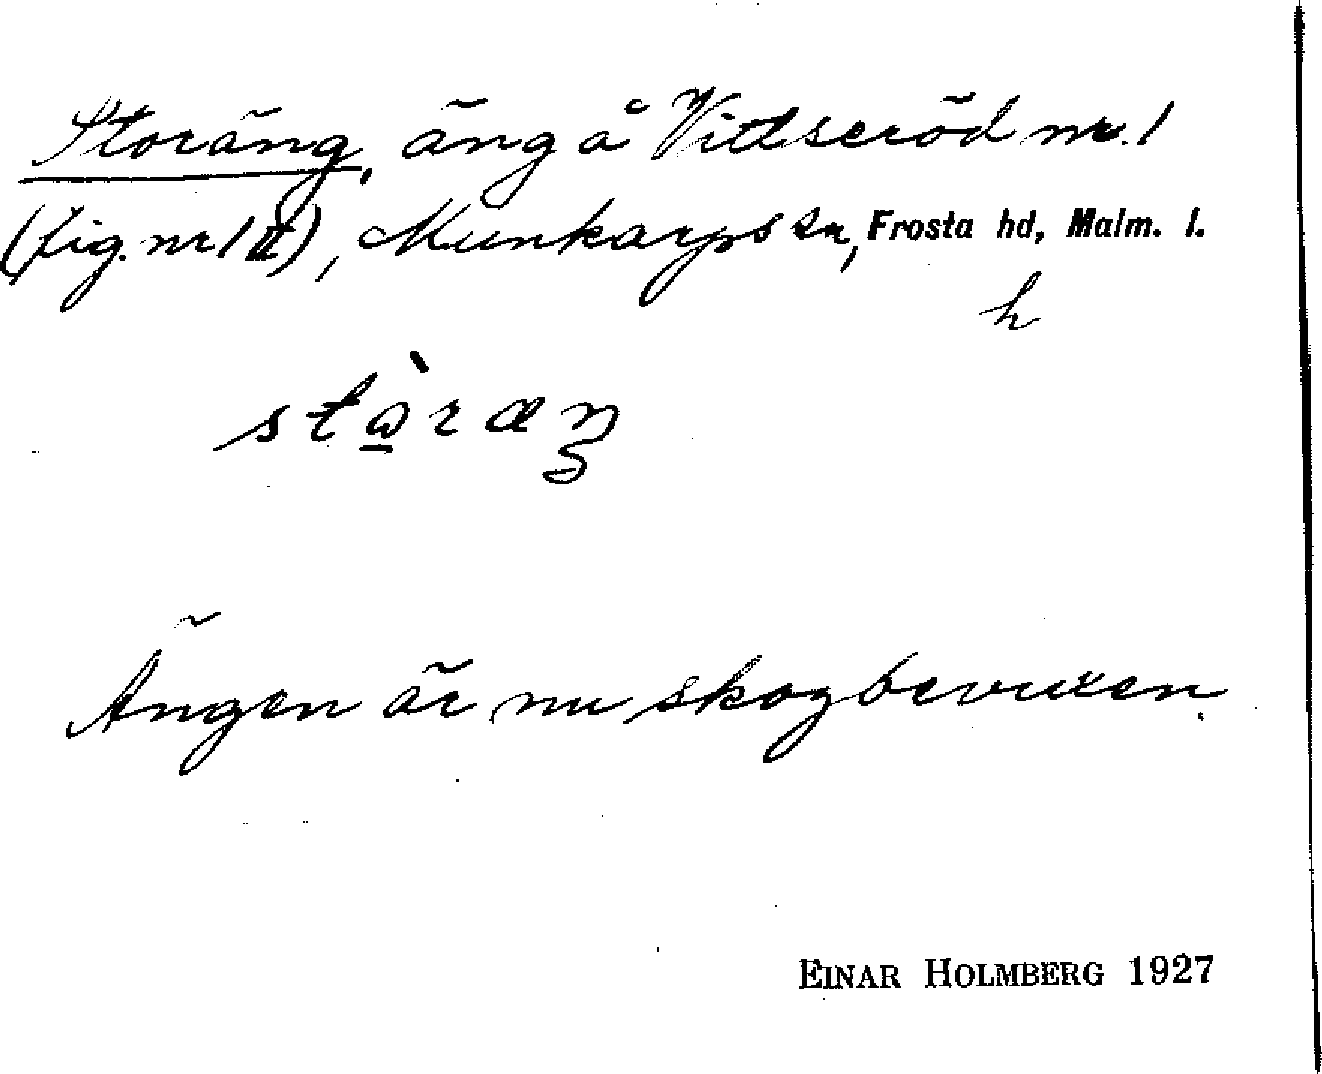 Storäng, äng å Vittseröd nr. 1
(fig. nr 1 II), Munkarps sn, Frosta hd, Malm. l.
h
Ängen är nu skogbevuxen.
EINAR HOLMBERG 1927